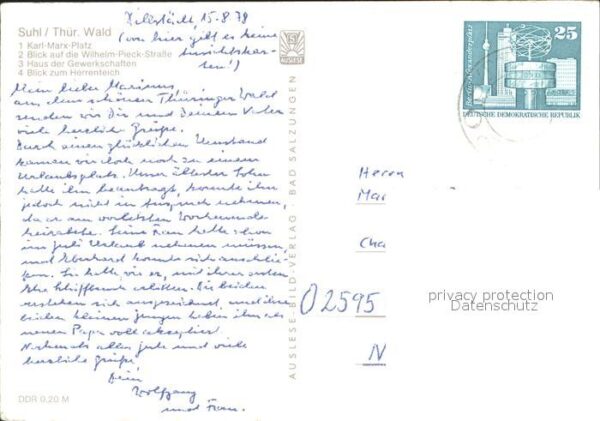 Suhl / Thür. Wald
1 Karl-Marx-Platz
2 Blick auf die Wilhelm-Pieck-Straße
3 Haus der Gewerkschaften
4 Blick zum Herrenteich
15.8.79
(von hier gibt es keine
Ansichtskar-
ten!)
Mein lieber Marinus,
aus dem schönen Thüringer Wald
senden wir Dir und Deinem Vater
viele herzliche Grüße.
Durch einen glücklichen Umstand
kamen wir doch noch zu einem
Urlaubsplatz. Unser ältester Sohn
hatte ihn beantragt, konnte ihn
jedoch nicht in Anspruch nehmen,
da er am vorletzten Wochenende
heiratete. Seine Frau hatte schon
im Juli Urlaub nehmen müssen,
und Eberhard konnte sich anschlie-
ßen. Sie hatte, wie er, mit ihrer ersten
Ehe Schiffbruch erlitten. Die beiden
verstehen sich ausgezeichnet, und ihre
beiden kleinen Jungen haben ihn als
neuen Papa voll akzeptiert.
Nochmals alles Gute und viele
herzliche Grüße
Dein
Wolfgang
und Frau.
DDR 0,20 M
AUSLESE-BILD-VERLAG · BAD SALZUNGEN
AUSLESE
Berlin-Alexanderplatz
25
DEUTSCHE DEMOKRATISCHE REPUBLIK
Herrn
Mar
Cha
O 2595
N
privacy protection
Datenschutz